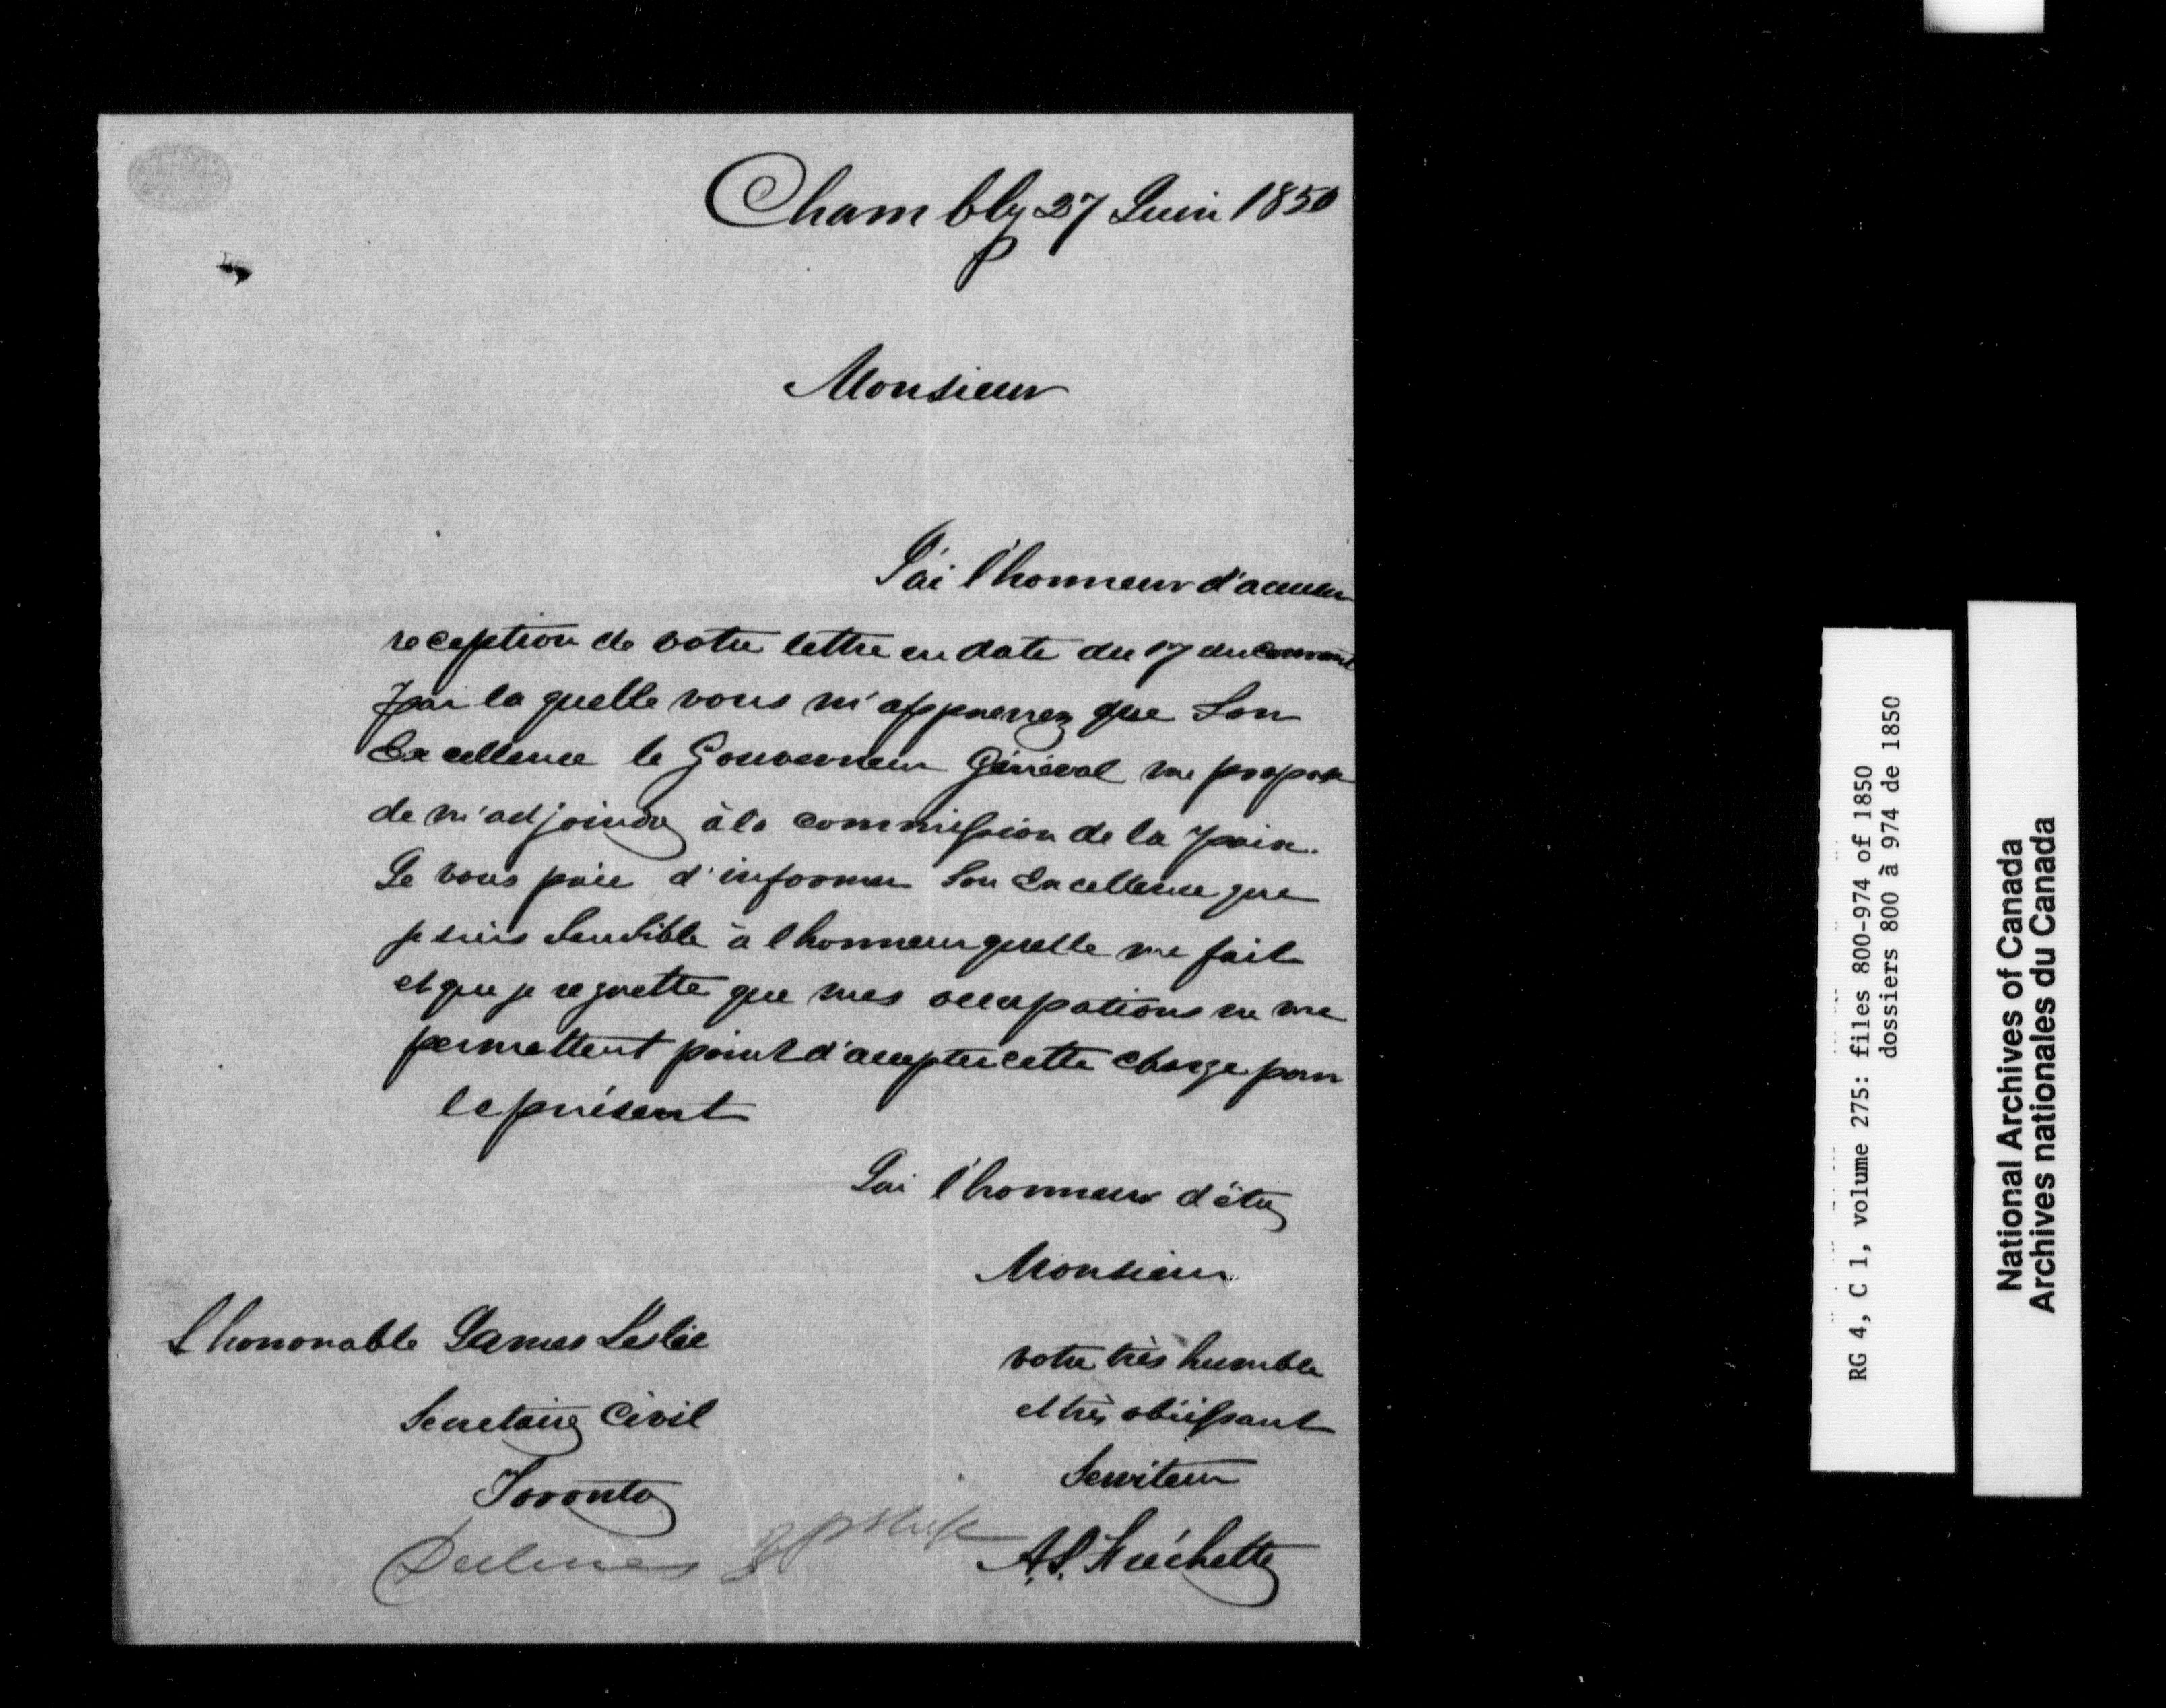 Chambly 27 Juin 1850
Monsieur
J'ai l'honneur d'accuser
reception de votre lettre en date du 17 du Courant
par la quelle vous m'apprenez que Son
Excellence le Gouverneur Général me propose
de m'adjoindre à la commission de la paix.
Je vous prie d'informer Son Excellence que
je suis Sensible à l honneur quelle me fait
et que je regrette que mes occupations ne me
permettent point d'accepter cette charge pour
le présent
J'ai l'honneur d'être
Monsieur
votre très humble
et très obéissant
Serviteur
A.S. Fréchette
L'honorable James Leslie
Secretaire Civil
Toronto
Declines
RG 4, C 1, volume 275: files 800-974 of 1850
dossiers 800 à 974 de 1850
National Archives of Canada
Archives nationales du Canada